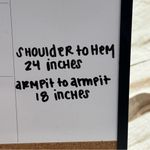 SHOULDER to HEM
24 inches
ARMPIT to ARMPIT
18 inches